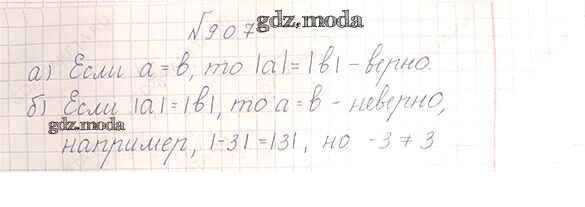 №907 gdz.moda
а) Если а = в, то |а| = |в| - верно.
б) Если |а| = |в|, то а = в - неверно,
gdz.moda
например, |-3| = |3|, но -3 ≠ 3